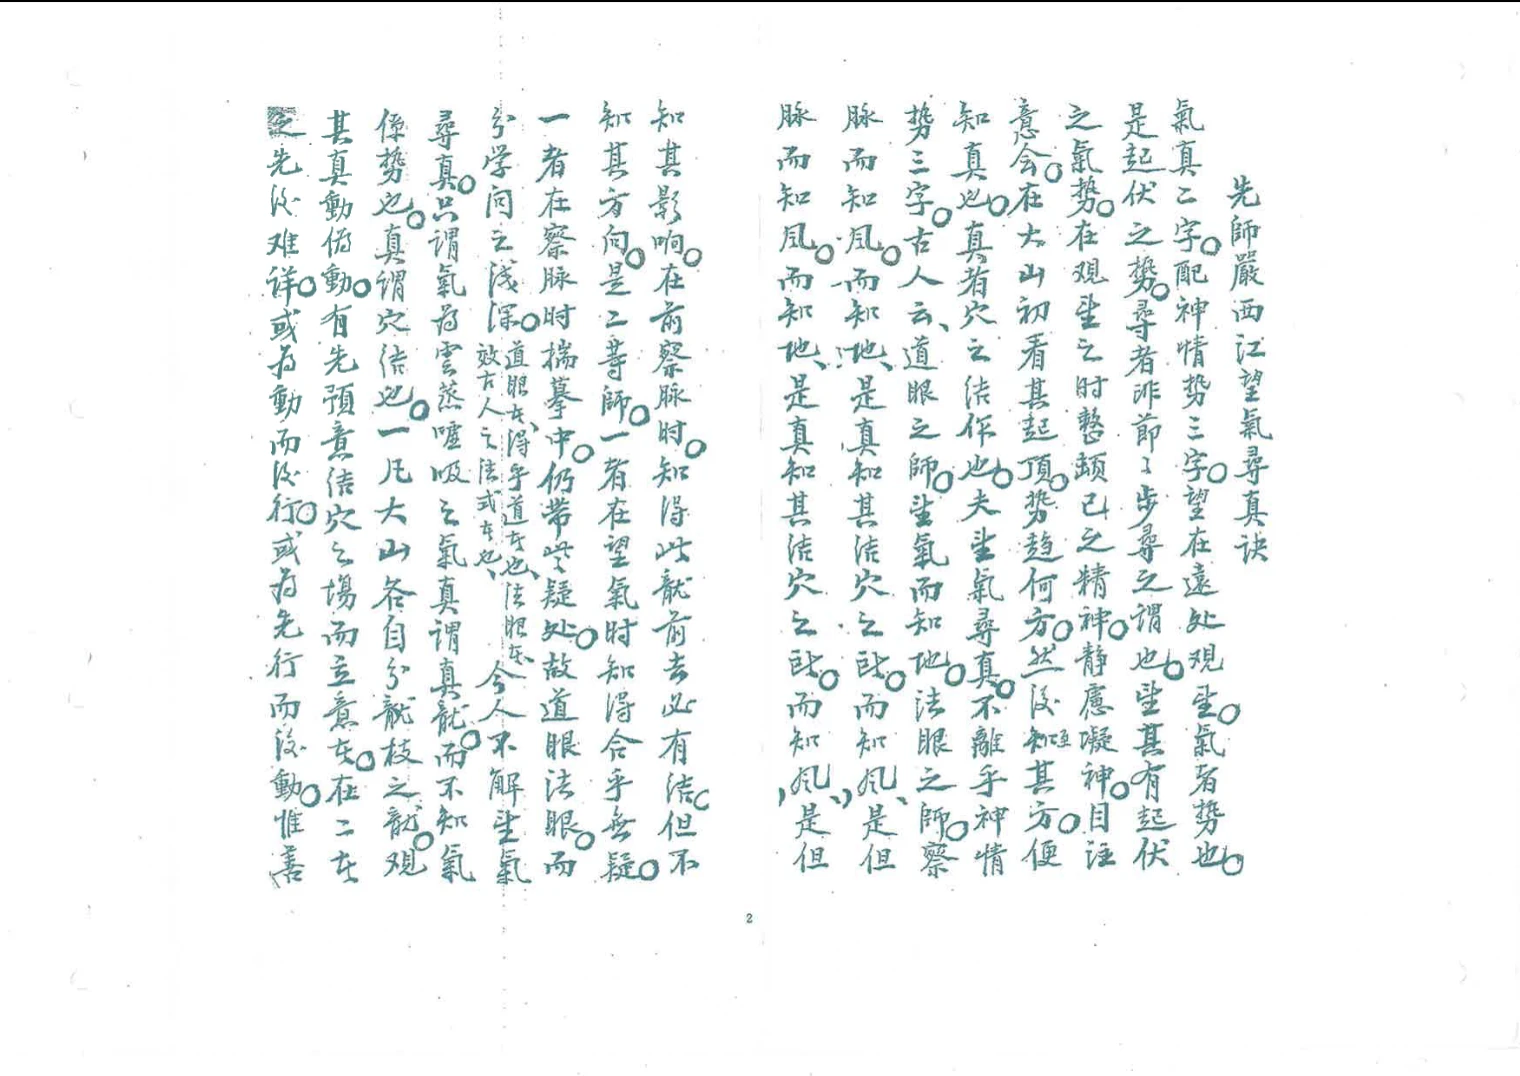 先師嚴西江望氣尋真訣
氣真二字。配神情势三字。望在遠处观望。氣者势也。
是起伏之势。尋者跡節〻步尋之谓也。望其有起伏
之氣势。在观望之时整顿己之精神。静慮凝神。目注
意会。在大山初看其起頂。势趋何方。然後知至其方。便
知真也。真者穴之结作也。夫望氣尋真。不離乎神情
势三字。古人云、道眼之師。望氣而知地。法眼之師。察
脉而知风。而知地、是真知其结穴之所。而知风、是但
脉而知风。而知地、是真知其结穴之所。而知风、是但
知其影响。在前察脉时。知得此龍前去必有结。但不
知其方向。是二等師。一者在望氣时知得合乎無疑。
一者在察脉时揣摹中。仍带些疑处。故道眼法眼。而
分学问之浅深。道眼在、得乎道在也、法眼在、效古人之法式在也、今人不解望氣
尋真。只谓氣為雲蒸嘘吸之氣真谓真龍。而不知氣
係势也。真谓穴结也。一凡大山各自分龍枝之龍。观
其真動偽動。有先預意结穴之場而立意在。在二在
之先後难详。或為動而後行。或為先行而後動。惟善
2